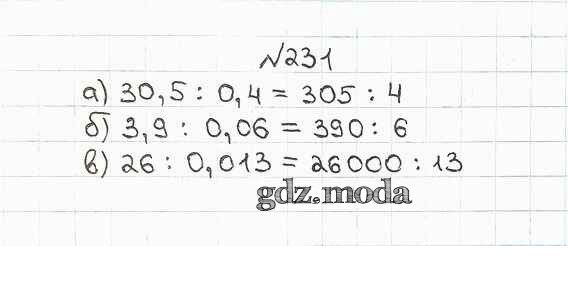 №231
а) 30,5 : 0,4 = 305 : 4
б) 3,9 : 0,06 = 390 : 6
в) 26 : 0,013 = 26000 : 13
gdz.moda